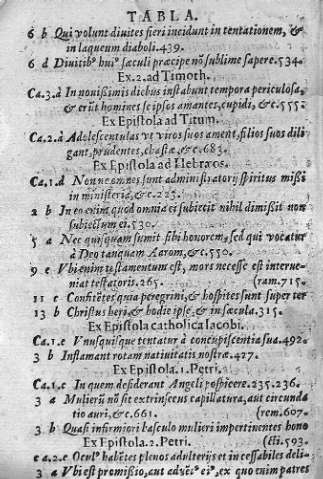 TABLA.
6 b Qui volunt divites fieri incidunt in tentationem, &
in laqueum diaboli.439.
6 d Divitib⁹ hui⁹ sæculi præcipe nō sublime sapere.534.
Ex.2.ad Timoth.
Ca.3.a In novissimis diebus instabunt tempora periculosa,
& erūt homines se ipsos amantes, cupidi, &c.555.
Ex Epistola ad Titum.
Ca.2.a Adolescentulas ut viros suos ament, filios suos dili
gant, prudentes, castæ, &c.683.
Ex Epistola ad Hebræos.
Ca.1.d Nonne omnes sunt administratorij spiritus missi
in ministeriū, &c.225.
2 b In eo enim quod omnia ei subiecit nihil dimissit non
subiectum ei.530.
5 a Nec quisquam sumit sibi honorem, sed qui vocatur
à Deo tanquam Aarom, &c.550.
9 e Ubi enim testamentum est, mors necesse est interve-
niat testatoris.265. (ram.715.
11 c Confitētes quia peregrini, & hospites sunt super ter
13 b Christus heri, & hodie ipse, & in sæcula.315.
Ex Epistola catholica Iacobi.
Ca.1.c Unusquisque tentatur à concupiscentia sua.492.
3 b Inflamant rotam nativitatis nostræ.427.
Ex Epistola.1.Petri.
Ca.1.c In quem desiderant Angeli prospicere.235.236.
3 a Mulierū nō sit extrinsecus capillatura, aut circunda
tio auri, &c.661. (rem.607.
3 b Quasi infirmiori vasculo mulieri impertinentes hono
Ex Epistola.2.Petri. (cti.593.
ca.2.c Ocul⁹ habētes plenos adulterijs et incessabiles deli-
3 a Ubi est promissio, aut advēt⁹ ei⁹, ex quo enim patres